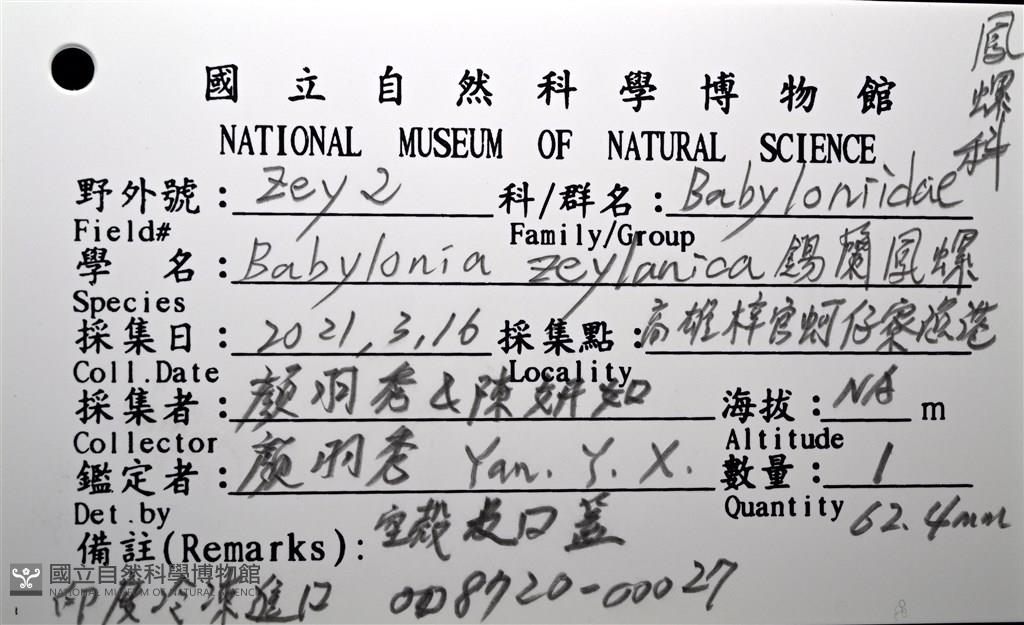 鳳螺科
國立自然科學博物館
NATIONAL MUSEUM OF NATURAL SCIENCE
野外號: zey 2 科/群名: Babyloniidae
Field# Family/Group
學 名: Babylonia zeylanica 錫蘭鳳螺
Species
採集日: 2021,3,16 採集點: 高雄梓官蚵仔寮漁港
Coll.Date Locality
採集者: 顏羽秀 & 陳妍如 海拔: NA m
Collector Altitude
鑑定者: 顏羽秀 Yan. Y. X. 數量: 1
Det.by Quantity 62.4mm
備註(Remarks): 空殼及口蓋
國立自然科學博物館
NATIONAL MUSEUM OF NATURAL SCIENCE
印度冷凍進口 008720-00027